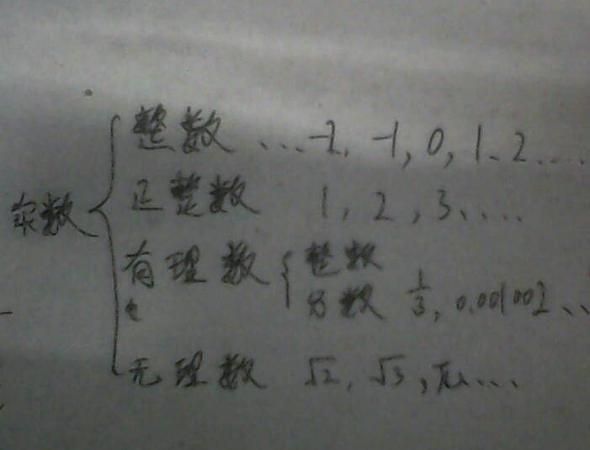 整数 ...-2, -1, 0, 1, 2....
正整数 1, 2, 3, ....
实数
有理数 整数
分数 1/3, 0.001002...
无理数 √2, √3, π...